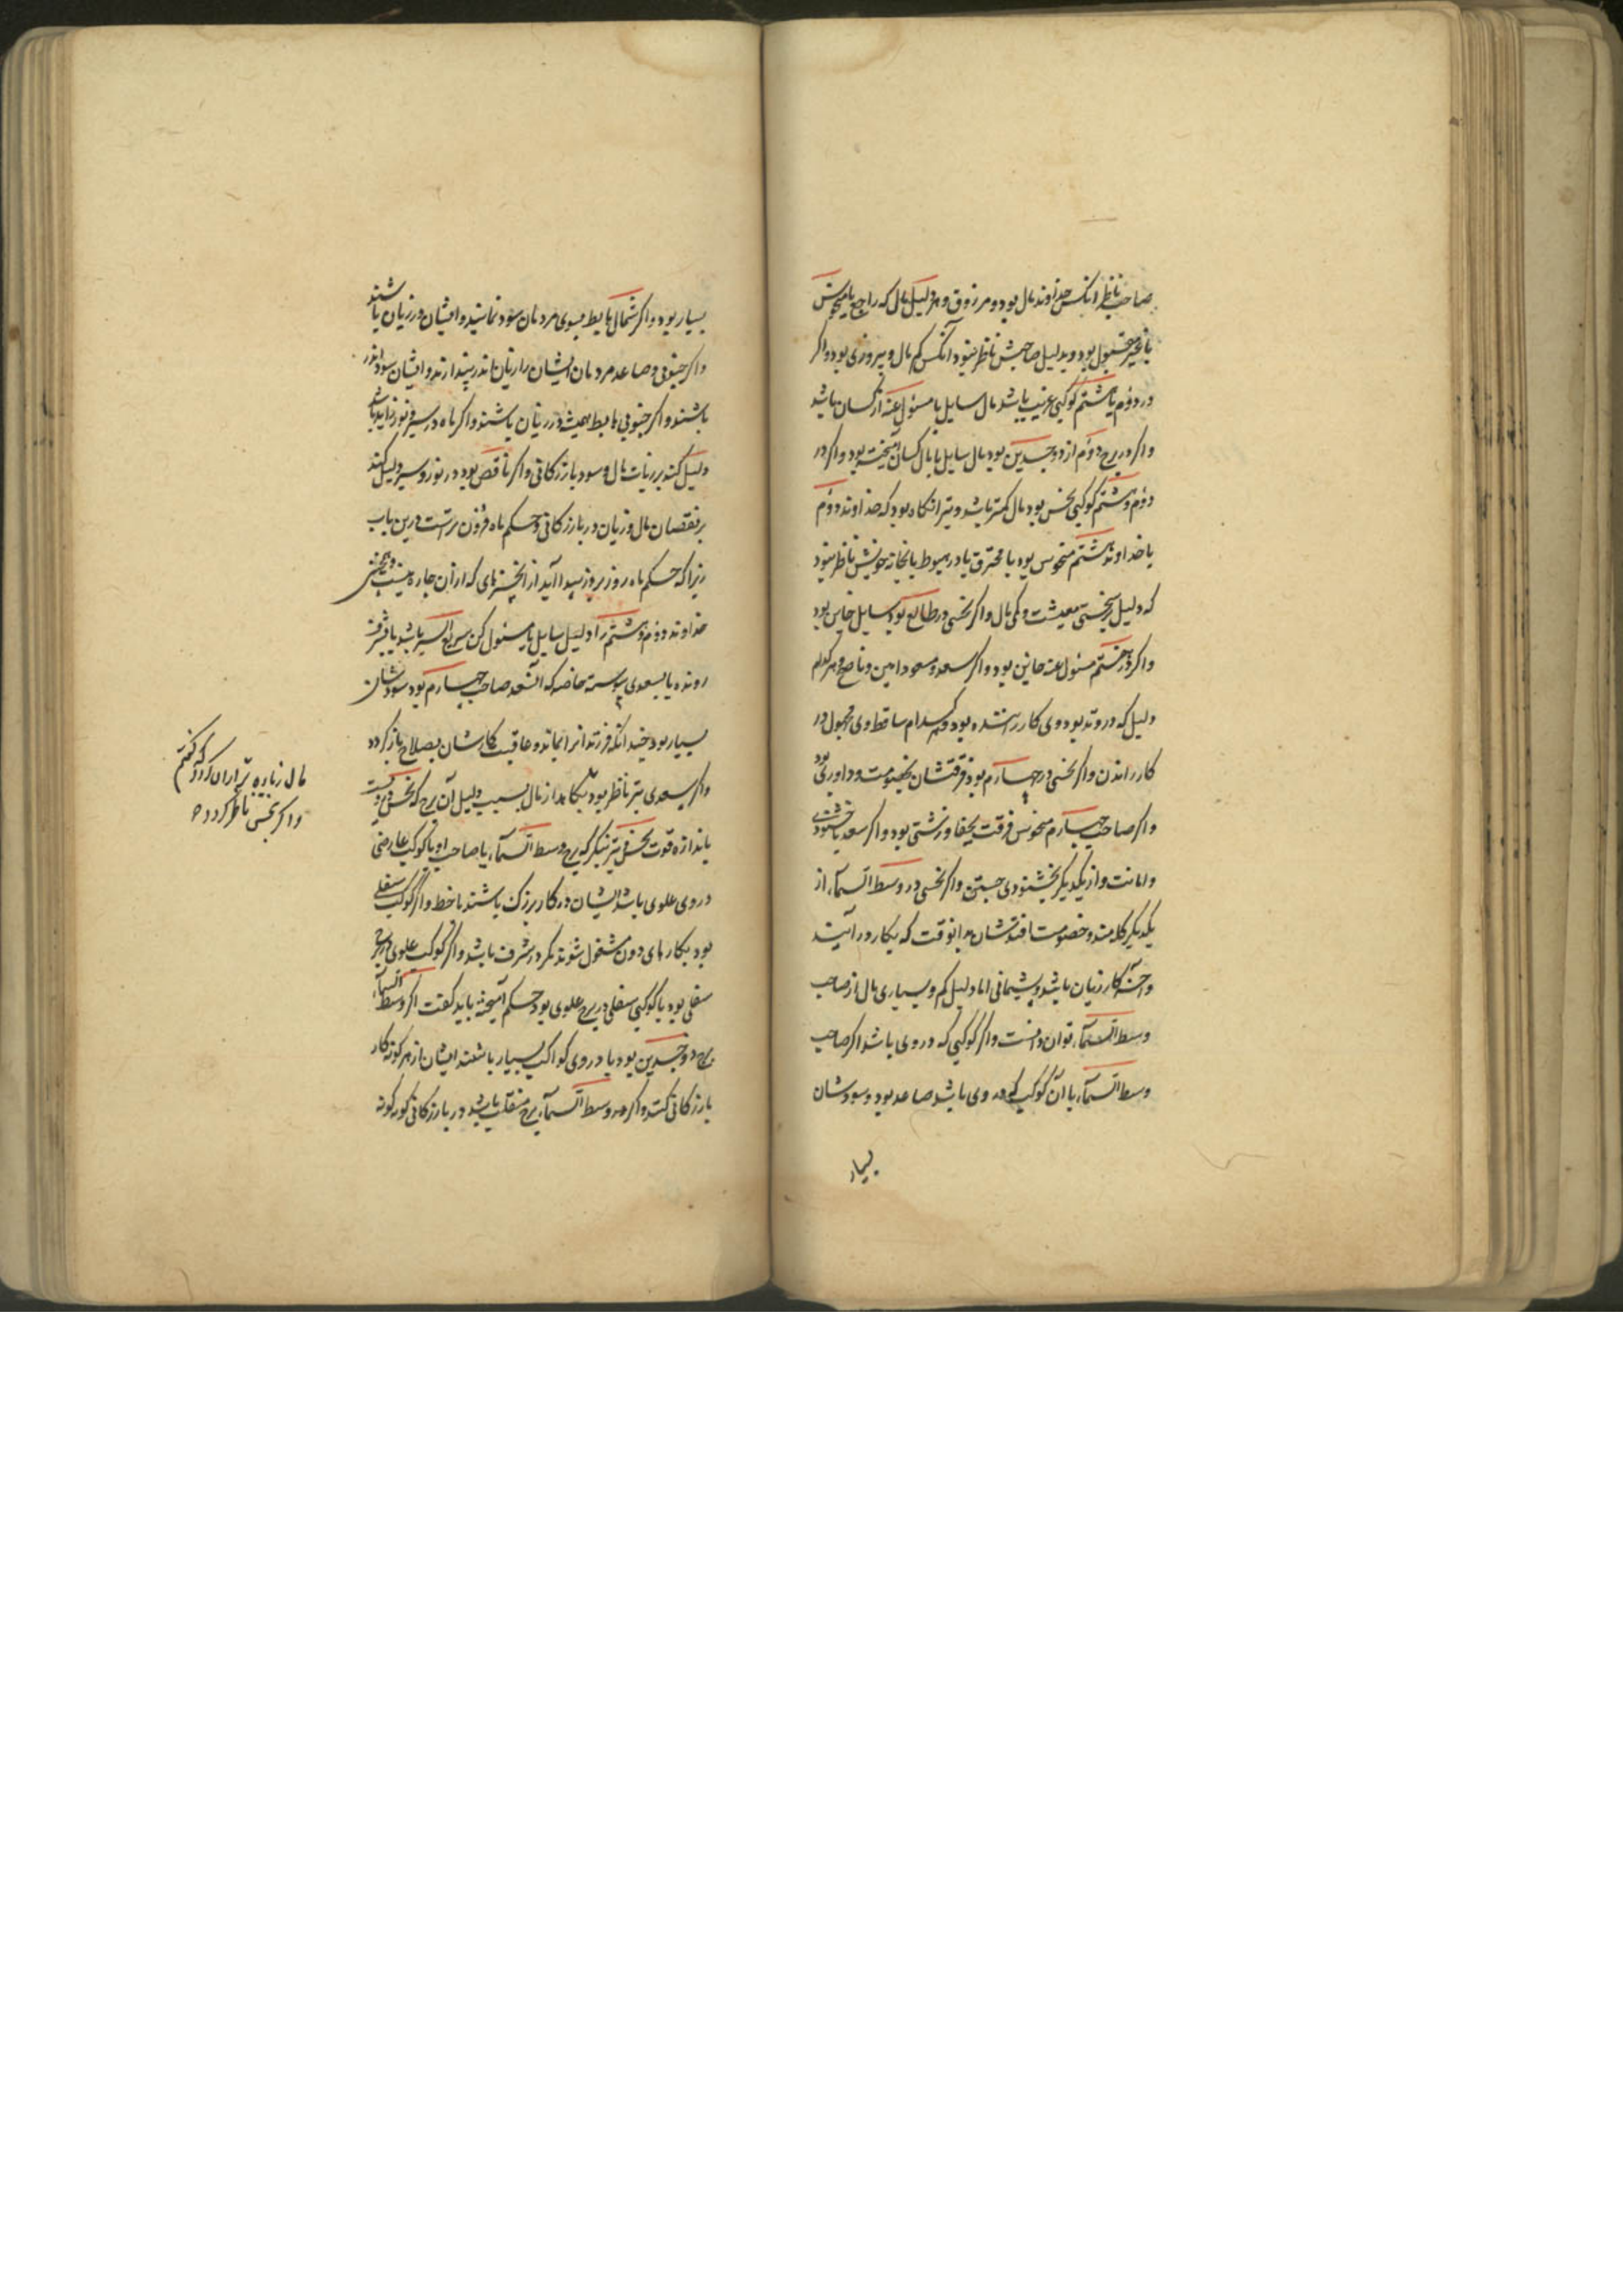 صاحب ناظر انکس خداوند مال بود و مرزوق و هر دلیل مال که راجع یا منحوس
یا غیر مقبول بود و بدلیل صاحبش ناظر نبود آنکس کم مال و پیروزی بود و اکر
در دوم یا هشتم کوکبی غریب باشد مال سایل یا مسئول عنه از کسان باشد
واکر در برج دوم از ذو جسدین بود مال سایل با مال کسان آمیخته بود و اکر در
دوم و هشتم کوکبی نحس بود مال کمتر باشد و بتر انکاه بود که خداوند دوم
یا خداوند هشتم منحوس بود یا محترق یا در هبوط یا بخانه خویش ناظر نبود
که دلیل سختی معیشت و کمی مال و اکر نحسی در طالع بود سایل خاین بود
واکر در هفتم مسئول عنه خاین بود و اکر سعد و مسعود امین و ناصح و هر کدام
دلیل که در وتد بود وی کار راننده بود و هر کدام ساقط وی مجبول در
کار راندن و اکر نحسی در چهارم بود فرقتشان بخصومت و داوری بود
واکر صاحب چهارم منحوس فرقت بجفا و زشتی بود و اکر سعد باشد بخشنودی
وامانت و از یکدیکر بخشنودی جستن و اکر نحسی در وسط السمآء از
یکدیکر کله مند و خصومت افتدشان بدانوقت که بکار در آیند
وآخر کار زیان باشد و پشیمانی اما دلیل کم و بسیاری مال از صاحب
وسط السمآء توان دانست و اکر کوکبی که در وی باشد اکر صاحب
وسط السمآء یا آن کوکب که در وی باشد صاعد بود و سودشان
بسیار
بسیار بود و اکر شمال هابط بسوی مردمان سود نمایند و ایشان در زیان باشند
واکر جنوبی و صاعد مردمان ایشان را زیان اندر پندارند و ایشان سود اندر
باشند و اکر جنوبی هابط همیشه در زیان باشند و اکر ماه در سیر و نور زاید باشد
دلیل کند بر زیادت مال و سود بازرکانی و اکر ناقص بود در نور و سیر دلیل کند
بر نقصان مال و زیان در بازرکانی و حکم ماه فزون تر است درین باب
زیرا که حکم ماه روز بروز پیدا آید از انچیزهای که از آن چاره نیست
خداوند دوم و هشتم را دلیل سایل یا مسئول کن سریع السیر باشد یا بشرف
رونده یا بسعدی پیوسته خاصه که آنسعد صاحب چهارم بود سودشان
بسیار بود چندانکه فرزندانرا بماند و عاقبت کارشان بصلاح باز کردد
واکر سعدی بتر ناظر بود بکاهد از مال بسبب دلیل آن برج که نحس
باندازه قوت نحس نیز بنکر که برج وسط السمآء یا صاحب او یا کوکب عارضی
در وی علوی باشد ایشان در کار بزرک باشند با خطر و اکر کوکب سفلی
بود بکارهای دون مشغول شوند مکر در شرف باشد و اکر کوکب علوی در برج
سفلی بود یا کوکبی سفلی در برج علوی بود حکم آمیخته باید کفت اکر وسط السمآء
برج ذو جسدین بود یا در وی کواکب بسیار باشند ایشان از هر کونه کار
بازرکانی کنند و اکر در وسط السمآء برج منقلب باشد در بازرکانی کونه کونه
مال زیاده تر از آن کردد که کفتم
و اکر نحس ناظر کردد